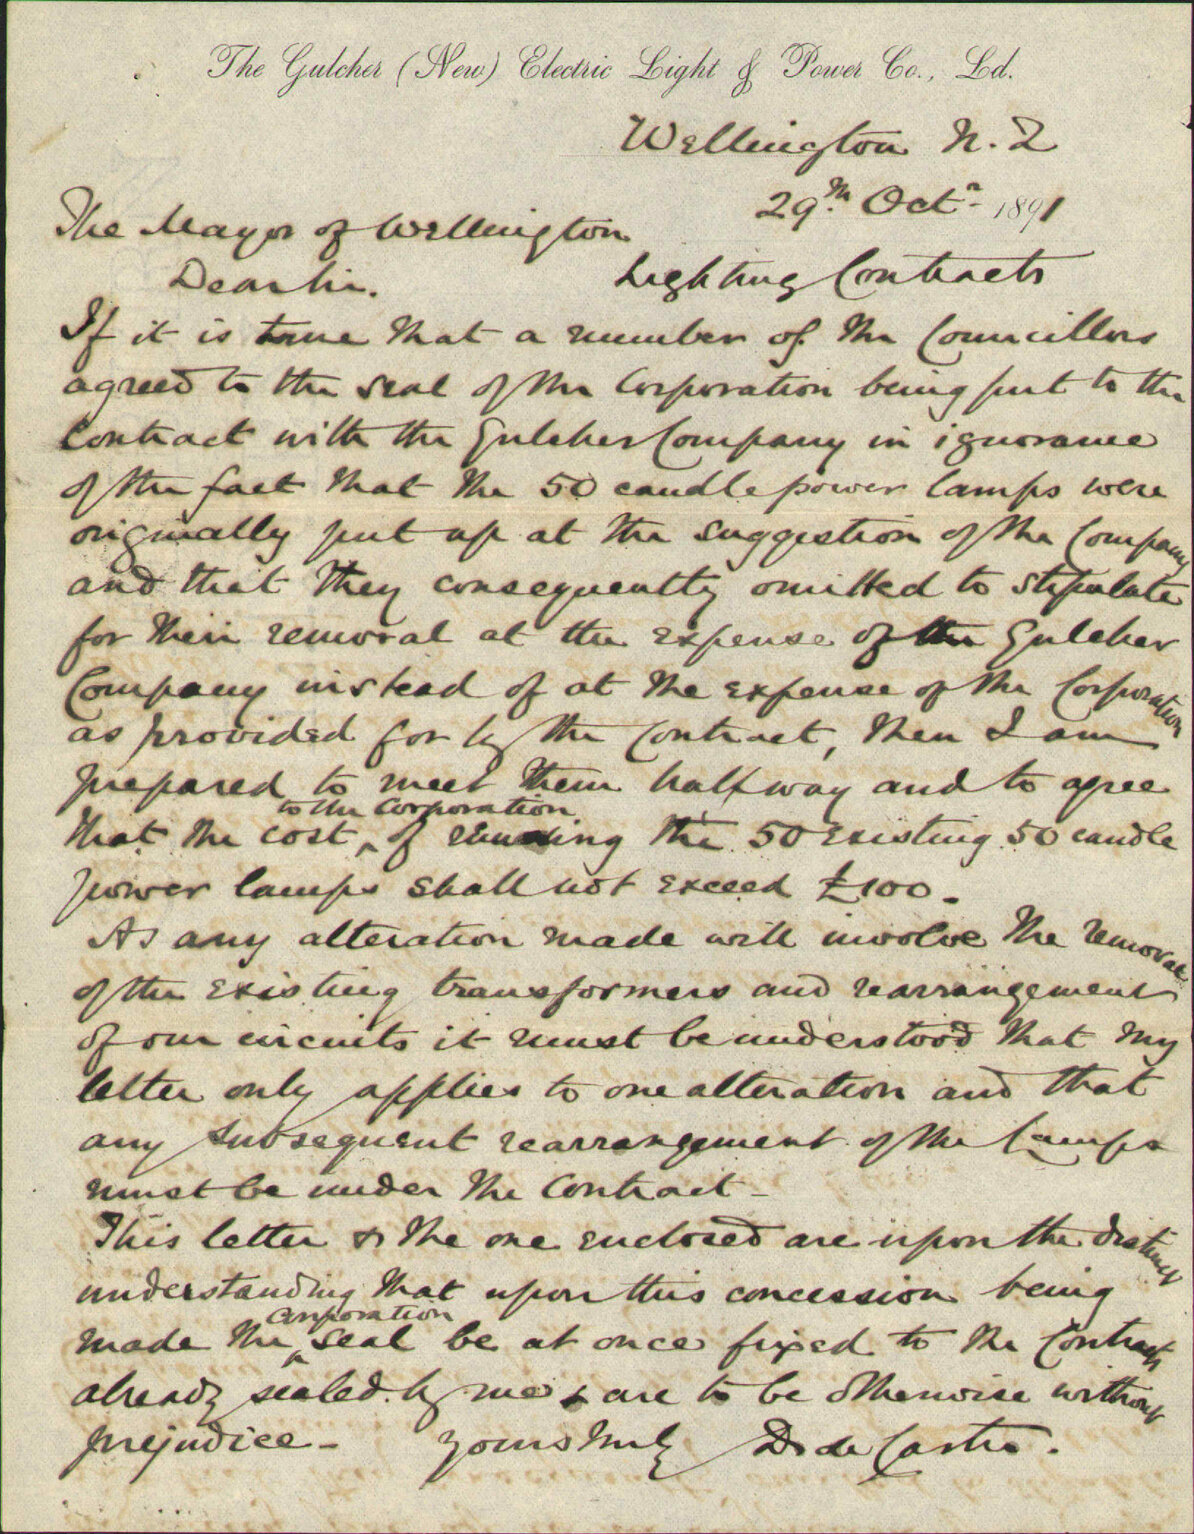 The Gulcher (New) Electric Light & Power Co., Ld.
Wellington N.Z
29th Octr 1891
The Mayor of Wellington
Dear Sir. Lighting Contracts
If it is true that a number of the Councillors
agreed to the seal of the Corporation being put to the
Contract with the Gulcher Company in ignorance
of the fact that the 50 candle power lamps were
originally put up at the suggestion of the Company
and that they consequently omitted to stipulate
for their removal at the expense of the Gulcher
Company instead of at the expense of the Corporation
as provided for by the Contract, then I am
prepared to meet them halfway and to agree
to the Corporation
that the cost ^ of removing the 50 existing 50 candle
power lamps shall not exceed £100.
As any alteration made will involve the removal
of the existing transformers and rearrangement
of our circuits it must be understood that my
letter only applies to one alteration and that
any subsequent rearrangement of the lamps
must be under the Contract -
This letter & the one enclosed are upon the distinct
understanding that upon this concession being
Corporation
made the ^ seal be at once fixed to the Contracts
already sealed by me & are to be otherwise without
prejudice - yours truly D de Castro.